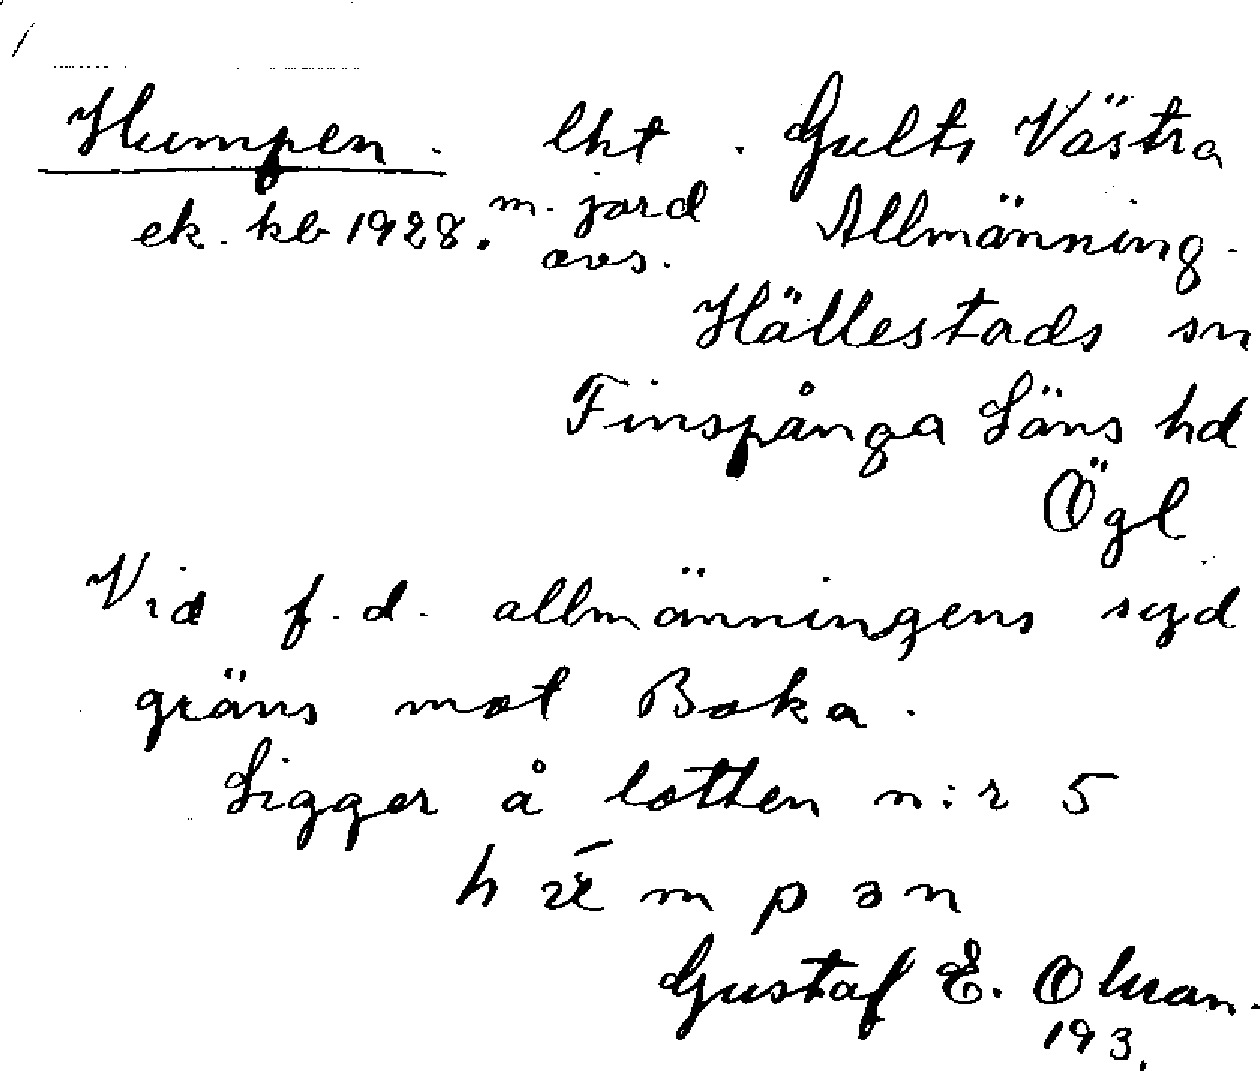 Humpen. lht. Gults Västra
ek. kb 1928. m. jord Allmänning.
avs.
Hällestads sn
Finspånga Läns hd
Ögl
Vid f.d. allmänningens syd
gräns mot Boka.
Ligger å lotten n:r 5
Gustaf E. Olman.
193.